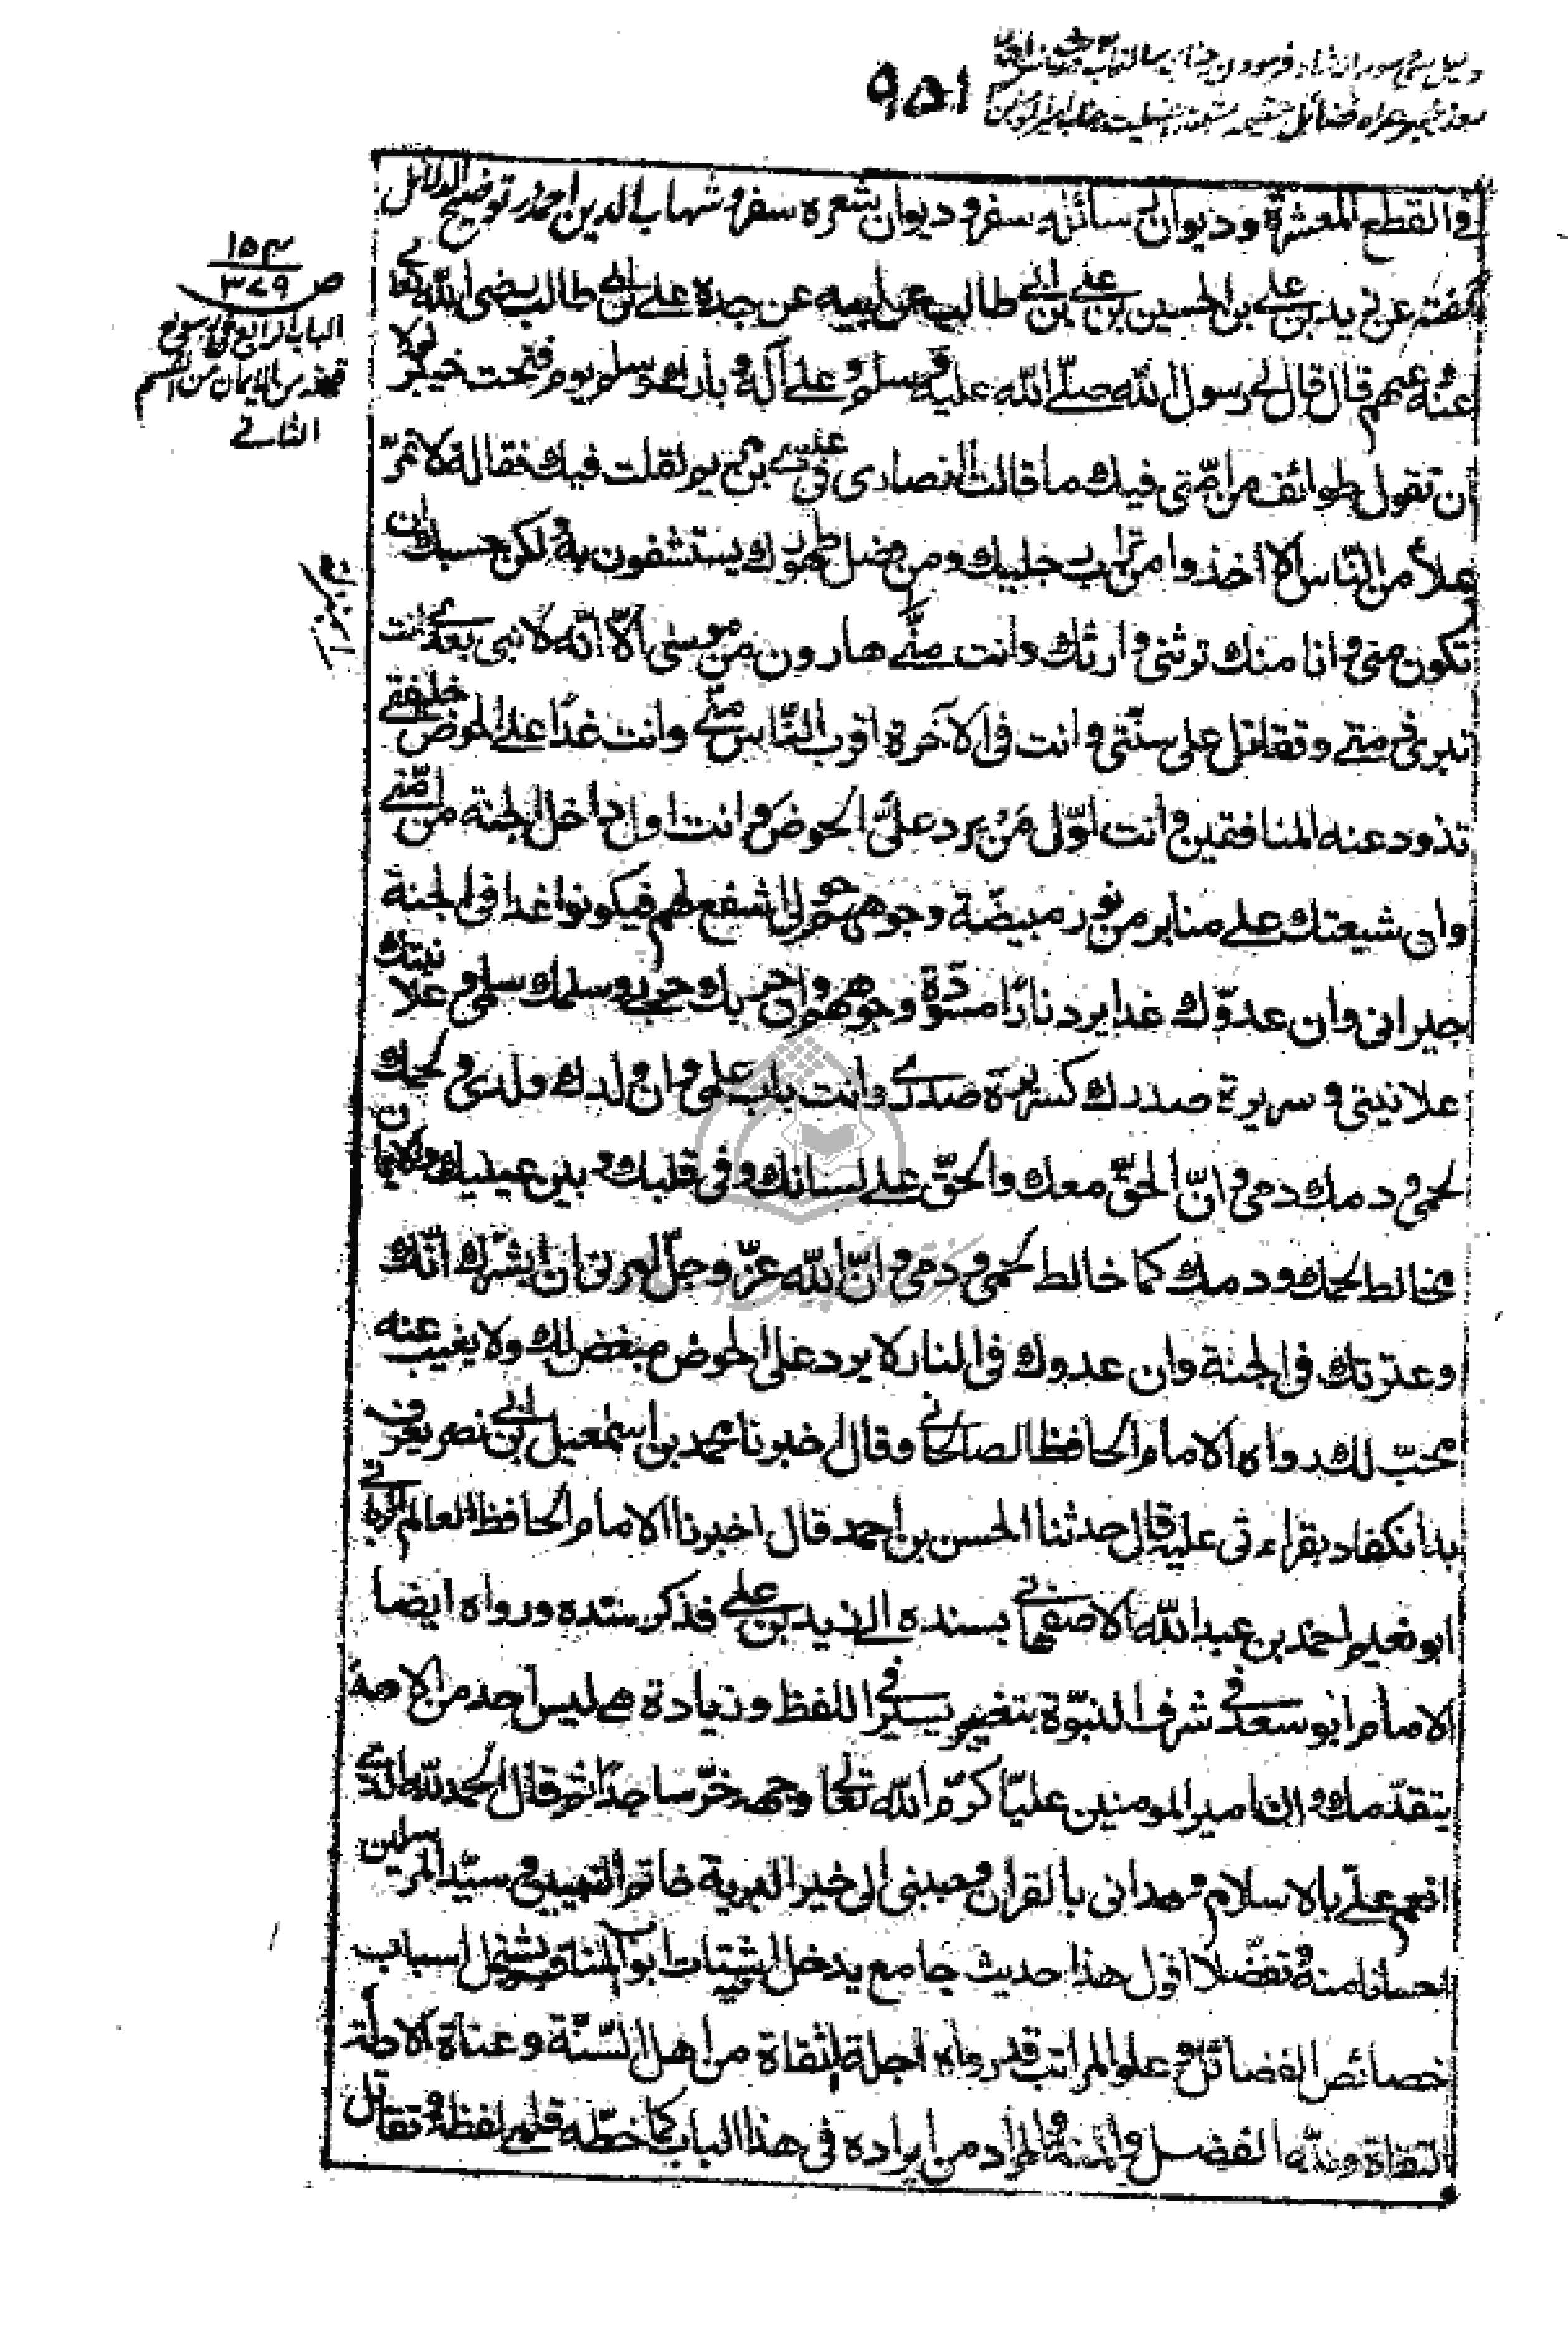 ۹۵۱
في القطع المعشرة وديوان رسائله سفر وديوان شعره سفر و شهاب الدين احمد در توضيح الدلائل
گفته عن زيد بن علي بن الحسين بن علي بن ابي طالب عن ابيه عن جده علي بن ابي طالب رضى الله تعالى
عنه و عنهم قال قال لي رسول الله صلّى الله عليه و سلم و على آله و بارك و سلم يوم فتحت خيبر لولا
ان تقول طوائف من امّتى فيك ما قالت النصارى فى عيسى بن مريم لقلت فيك مقالة لا تمرّ
بملأ من النّاس الا اخذوا من تراب رجليك و من فضل طهورك يستشفون به و لكن حسبك ان
تكون منى و انا منك ترثنى و ارثك و انت منّي هارون من موسى الّا انّه لا نبى بعدي انت
تبرئ ذمتي و تقاتل على سنّتى و انت فى الآخرة اقرب النّاس منّي و انت غدًا على الحوض خليفتي
تذود عنه المنافقين و انت اوّل مَنْ يرد علىَّ الحوض و انت اول داخل الجنة من امّتي
وان شيعتك على منابر من نور مبيضّة وجوههم حولى اشفع لهم فيكونوا غدا فى الجنة
جيرانى وان عدوّك غدا يرد نارًا مسودّة وجوههم وان حربك حربي و سلمك سلمى و علانيتك
علانيتى و سريرة صدرك كسريرة صدري و انت باب علمى و ان ولدك ولدى و لحمك
لحمى و دمك دمى و انّ الحقّ معك والحقّ على لسانك و فى قلبك و بين عينيك و الايمان
مخالط لحمك و دمك كما خالط لحمى و دمى و انّ الله عزّ و جلّ امرنى ان ابشرك انّك
وعترتك فى الجنة وان عدوك فى النار لا يرد على الحوض مبغض لك ولا يغيب عنه
محبّ لك رواه الامام الحافظ الصالحاني و قال اخبرنا محمد بن اسمعيل بن ابي نصر يعرف
بدانكفاد بقراءتى عليه قال حدثنا الحسن بن أحمد قال اخبرنا الامام الحافظ العالم الربانى
ابو نعيم احمد بن عبد الله الاصفهاني بسنده الى زيد بن علي فذكر سنده ورواه ايضا
الامام ابو سعد في شرف النبوّة بتغيير يسير في اللفظ وزيادة هى ليس احد من الامة
يتقدّمك و ان امير المومنين عليّا كرّم الله تعالى وجهه خرّ ساجدًا ثم قال الحمد لله الذي
انعم علىّ بالاسلام و هدانى بالقرآن و حببنى الى خير البرية خاتم النبيين و سيّد المرسلين
احسانا منه و تفضّلا اقول هذا حديث جامع يدخل اشتات ابواب المناقب و يشتمل اسباب
خصائص الفضائل و علو المراتب قد رواه اجلة الثقاة من اهل السّنّة و عناة الادلة
التقاة ولله الفضل والمنة و المراد من ايراده فى هذا الباب كما خطّه قلمي لفظة و تقاتل
۱۵۳
ص ۳۷۹
الباب الرابع
من القسم
الثانى